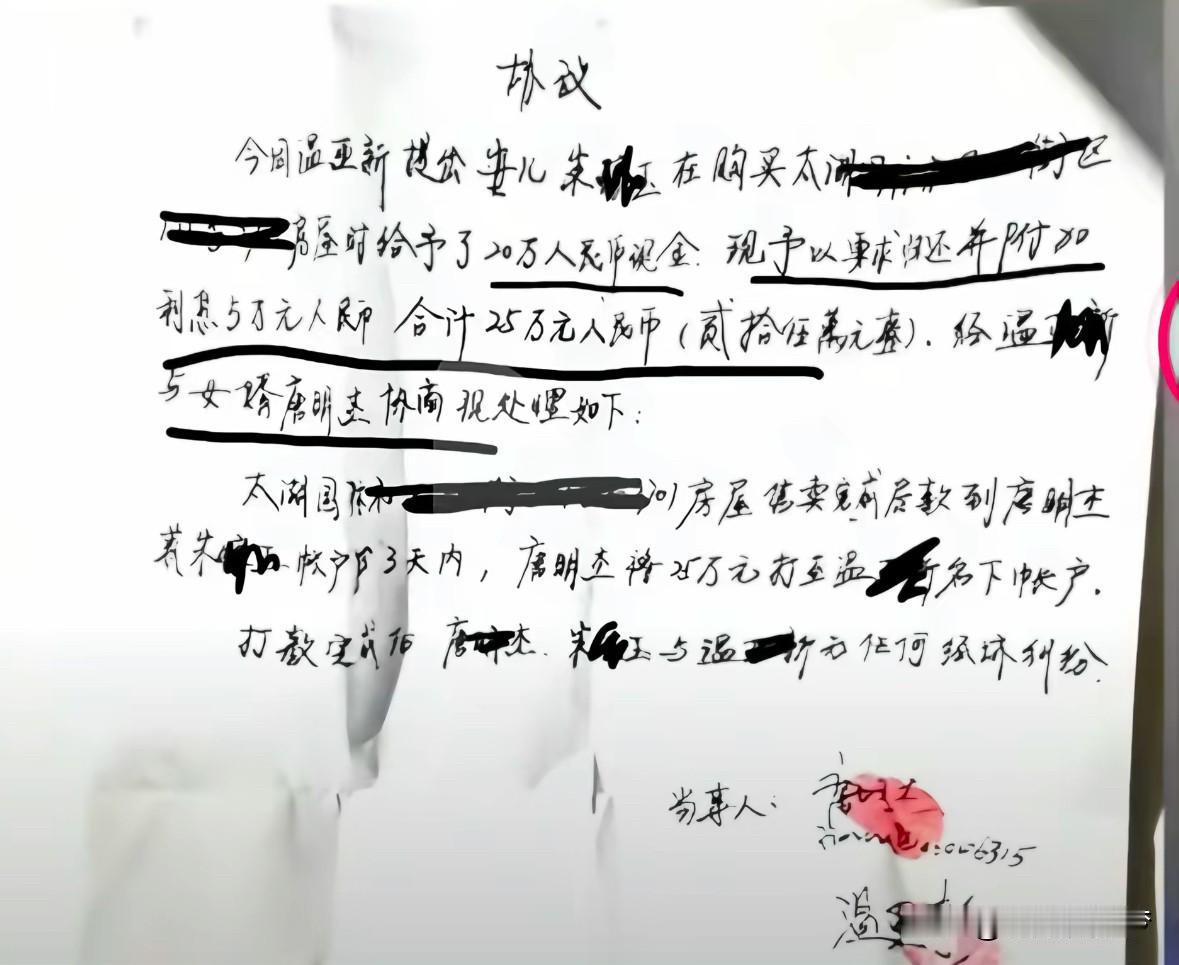 协议
今因温亚新提出女儿朱 玉在购买太湖 街区
房屋时给予了20万人民币现金.现予以要求归还并附加
利息5万元人民币 合计25万元人民币(贰拾伍萬元整).经温 新
与女婿唐明杰协商现处理如下:
太湖国际 301房屋售卖完成后款到唐明杰
若朱 玉帐户后3天内,唐明杰将25万元打至温 新名下帐户.
打款完成后唐 杰.朱 玉与温 新无任何经济纠纷.
当事人: 唐明杰
6315
温